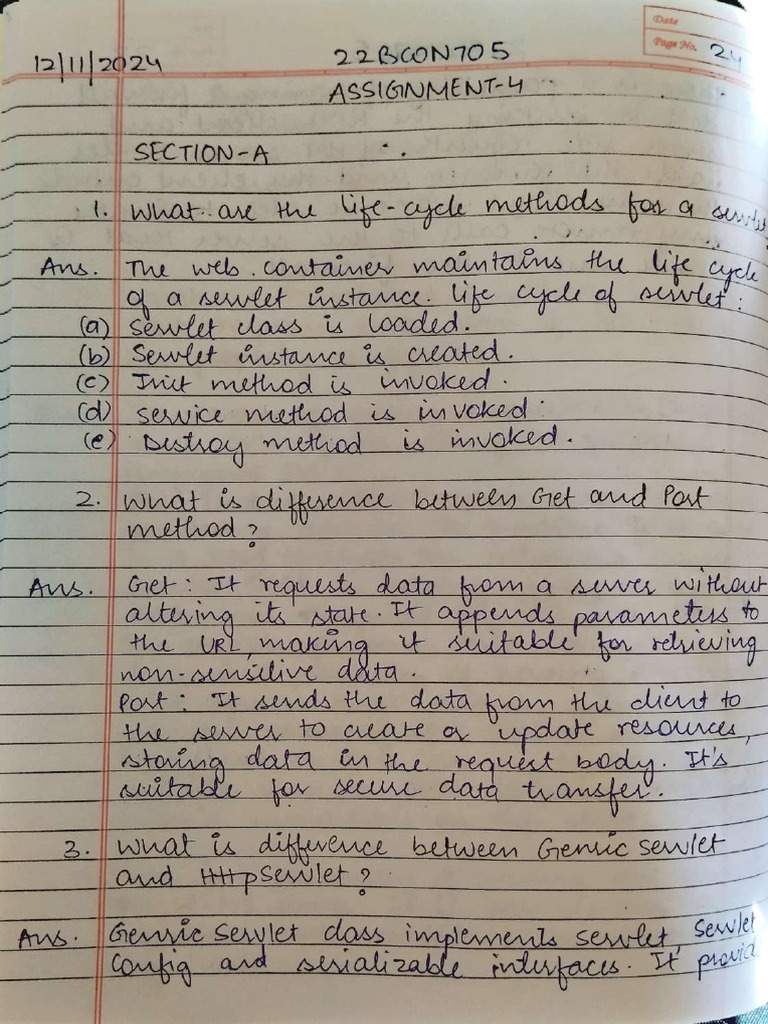 Date
Page No. 24
12/11/2024 22BCON705
ASSIGNMENT-4
SECTION-A
1. What are the life-cycle methods for a servlet
Ans. The web container maintains the life cycle
of a servlet instance. life cycle of servlet :
(a) Servlet class is loaded.
(b) Servlet instance is created.
(c) Init method is invoked.
(d) Service method is invoked.
(e) Destroy method is invoked.
2. What is difference between Get and Post
method?
Ans. Get : It requests data from a server without
altering its state. It appends parameters to
the URL, making it suitable for retrieving
non-sensitive data.
Post : It sends the data from the client to
the server to create or update resources,
storing data in the request body. It's
suitable for secure data transfer.
3. What is difference between Genric Servlet
and HttpServlet?
Ans. Genric Servlet class implements servlet, Servlet
Config and serializable interfaces. It provid